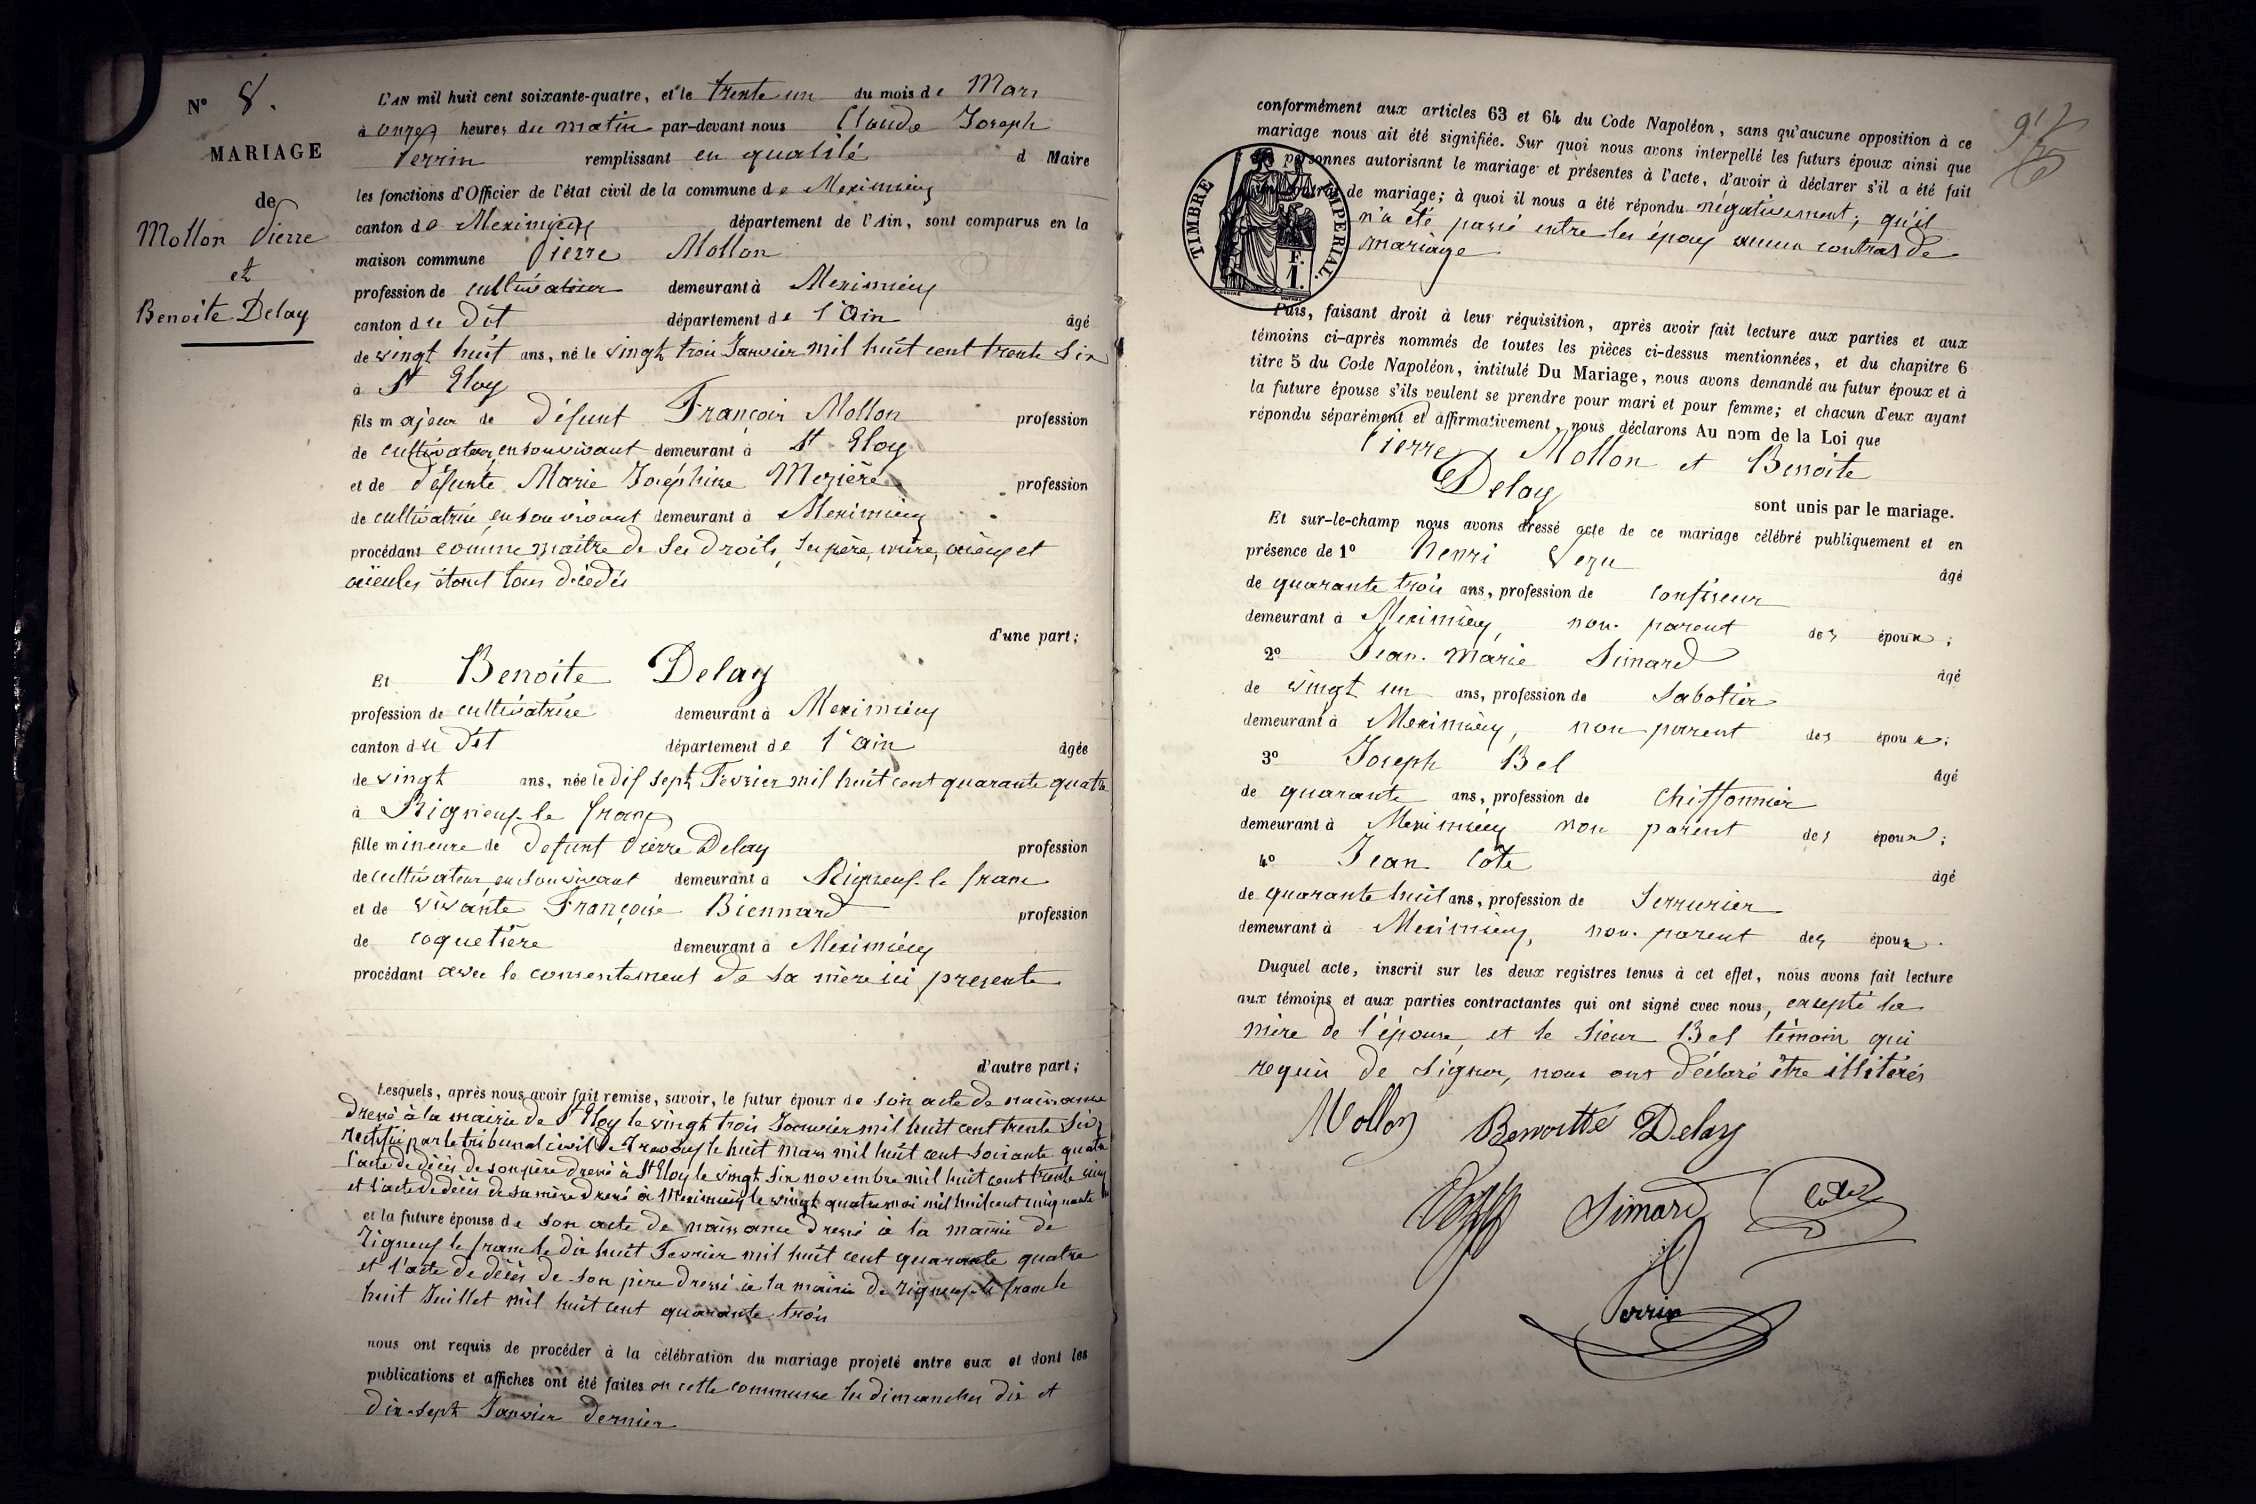 N° 8.
MARIAGE
de
Mollon Pierre
et
Benoite Delay
L'AN mil huit cent soixante-quatre, et le trente un du mois de Mars
à onze heures du matin par-devant nous Claude Joseph
Perrin remplissant en qualité d Maire
les fonctions d'Officier de l'état civil de la commune de Meximieux
canton de Meximieux département de l'Ain, sont comparus en la
maison commune Pierre Mollon
profession de cultivateur demeurant à Meximieux
canton du dit département de l'Ain âgé
de vingt huit ans, né le vingt trois Janvier mil huit cent trente Six
à St Eloy
fils majeur de défunt François Mollon profession
de cultivateur en son vivant demeurant à St Eloy
et de défunte Marie Joséphine Mezière profession
de cultivatrice en son vivant demeurant à Meximieux
procédant comme maître de ses droits, ses père, mère, aïeux et
aïeules étant tous décédés
d'une part;
Et Benoite Delay
profession de cultivatrice demeurant à Meximieux
canton du dit département de l'ain âgée
de vingt ans, née le dix sept Fevrier mil huit cent quarante quatre
à Rigneux-le franc
fille mineure de defunt Pierre Delay profession
de cultivateur en son vivant demeurant à Rigneux-le franc
et de vivante Françoise Biennard profession
de coquetière demeurant à Meximieux
procédant avec le consentement de sa mère ici presente
d'autre part;
Lesquels, après nous avoir fait remise, savoir, le futur époux de son acte de naissance
dressé à la mairie de St Eloy le vingt trois Janvier mil huit cent trente Six,
rectifié par le tribunal civil de Trevoux le huit mars mil huit cent soixante quatre
l'acte de décès de son père dressé à St Eloy le vingt six novembre mil huit cent trente cinq
et l'acte de décès de sa mère dressé à Meximieux le vingt quatre mai mil huit cent cinquante
et la future épouse de son acte de naissance dressé à la mairie de
Rigneux le franc le dix huit Fevrier mil huit cent quarante quatre
et l'acte de décès de son père dressé à la mairie de rigneux-le franc le
huit Juillet mil huit cent quarante trois
nous ont requis de procéder à la célébration du mariage projeté entre eux et dont les
publications et affiches ont été faites en cette commune les dimanches dix et
dix-sept Janvier dernier
conformément aux articles 63 et 64 du Code Napoléon, sans qu'aucune opposition à ce
mariage nous ait été signifiée. Sur quoi nous avons interpellé les futurs époux ainsi que
personnes autorisant le mariage et présentes à l'acte, d'avoir à déclarer s'il a été fait
de mariage; à quoi il nous a été répondu négativement; qu'il
n'a été passé entre les époux aucun contrat de
mariage
TIMBRE IMPERIAL.
F.
1.
Puis, faisant droit à leur réquisition, après avoir fait lecture aux parties et aux
témoins ci-après nommés de toutes les pièces ci-dessus mentionnées, et du chapitre 6
titre 5 du Code Napoléon, intitulé Du Mariage, nous avons demandé au futur époux et à
la future épouse s'ils veulent se prendre pour mari et pour femme; et chacun d'eux ayant
répondu séparément et affirmativement, nous déclarons Au nom de la Loi que
Pierre Mollon et Benoite
Delay
sont unis par le mariage.
Et sur-le-champ nous avons dressé acte de ce mariage célébré publiquement et en
présence de 1° Henri Vezu âgé
de quarante trois ans, profession de Confiseur
demeurant à Meximieux, non parent des époux;
2° Jean-Marie Simard âgé
de vingt un ans, profession de Sabotier
demeurant à Meximieux, non parent des époux;
3° Joseph Bel âgé
de quarante ans, profession de Chiffonnier
demeurant à Meximieux non parent des époux;
4° Jean Côte âgé
de quarante huit ans, profession de Serrurier
demeurant à Meximieux, non parent des époux.
Duquel acte, inscrit sur les deux registres tenus à cet effet, nous avons fait lecture
aux témoins et aux parties contractantes qui ont signé avec nous, excepté la
mère de l'épouse, et le Sieur Bel témoin qui
requis de signer, nous ont déclaré être illitérés
Mollon Benoitte Delay
Simard
Perrin